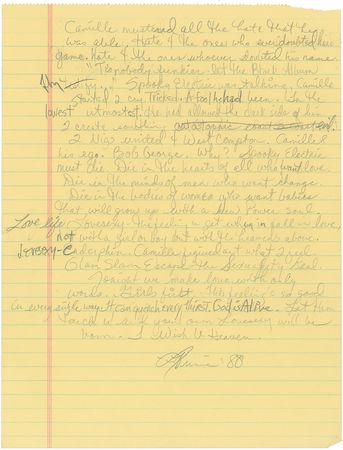 Camille mustered all the hate that he
was able. Hate 4 the ones who ever doubted his
game. Hate 4 the ones whoever doubted his name.
"Tis nobody funkier - let the Black Album
fly." Spooky Electric was talking, Camille
started 2 cry. Tricked. A fool he had been. In the
lowest utmostest. He had allowed the dark side of him
2 create something evil.
2 Nigs united 4 West Compton. Camille &
his ego. Bob George. Why? Spooky Electric
must die. Die in the hearts of all who want love.
Die in the minds of men who want change.
Die in the bodies of women who want babies
that will grow up with a New Power Soul.
Love Life Lovesexy - the feeling u get when u fall in love,
not with a girl or boy but with the heavens above.
Lovesexy - Endorphin. Camille figured out what 2 feel.
Glam Slam Escape - the Sexuality Real
Tonight we make love with only
words. Girls first. This feeling's so good
in every single way. It can quench every thirst. God is Alive. Let Him
touch u &
born. I Wish U Heaven.
'88